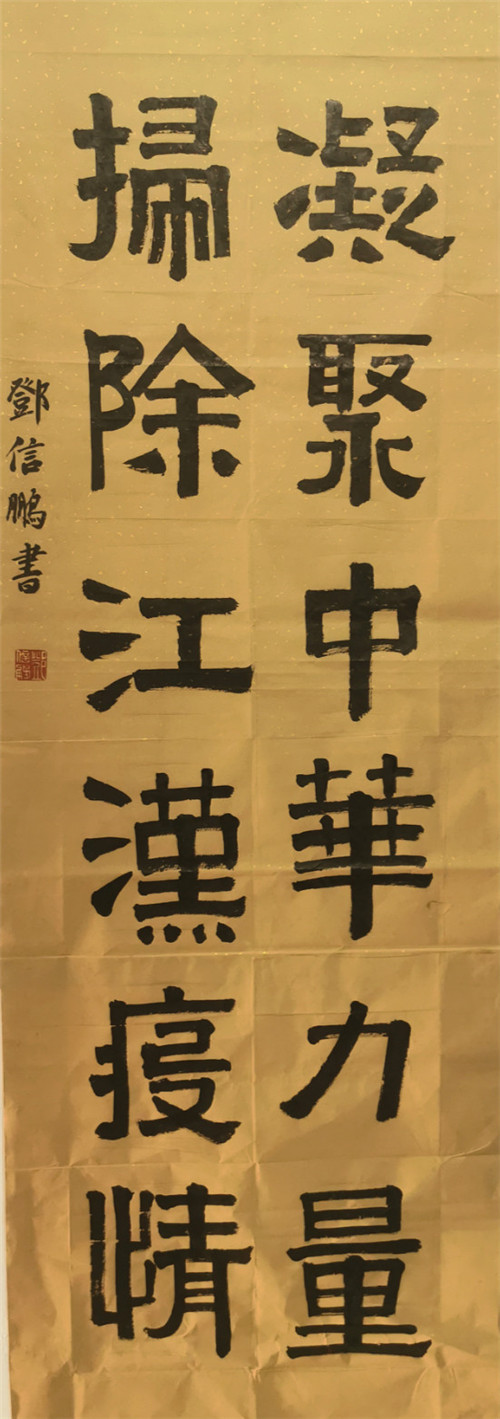 凝聚中華力量
掃除江漢疫情
鄧信鵬書